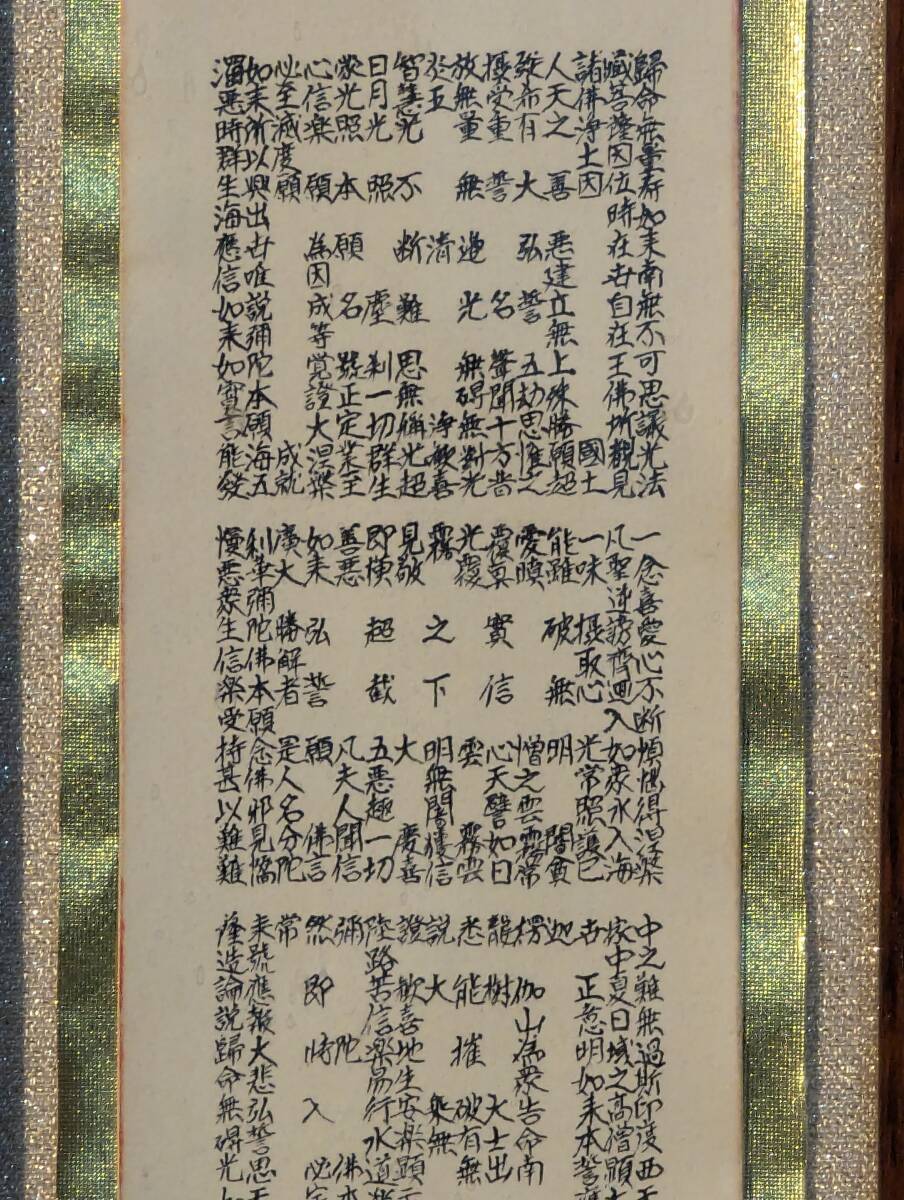 歸命無量壽如来南無不可思議光法
藏菩薩因位時在世自在王佛所覩見
諸佛淨土因國土
人天之善惡建立無上殊勝願超
發希有大弘誓五劫思惟之
攝受重誓名聲聞十方普
放無量無邊光無碍無對光
炎王清淨歡喜
智慧光不断難思無稱光超
日月光照塵刹一切群生
蒙光照本願名號正定業至
心信樂願為因成等覚證大涅槃
必至滅度願成就
如来所以興出世唯説彌陀本願海五
濁悪時群生海應信如来如實言能發
一念喜愛心不断煩悩得涅槃
凡聖逆謗齊迴入如衆水入海
一味摂取心光常照護已
能雖破無明闇貪
愛瞋憎之雲霧常
覆真實信心天譬如日
光覆雲霧雲
霧之下明無闇獲信
見敬大慶喜
即横超截五悪趣一切
善悪凡夫人聞信
如来弘誓願佛言
廣大勝解者是人名分陀
利華彌陀佛本願念佛邪見憍
慢悪衆生信樂受持甚以難難
中之難無過斯印度西天
家中夏日域之高僧顯大
世正意明如来本誓應
迦
楞伽山為衆告命南
龍樹大士出
悉能摧破有無
説大乗無
證歓喜地生安楽顕示
陸路苦信樂易行水道楽
彌陀佛本
然即時入必定
常
来號應報大悲弘誓恩天
薩造論説歸命無碍光如